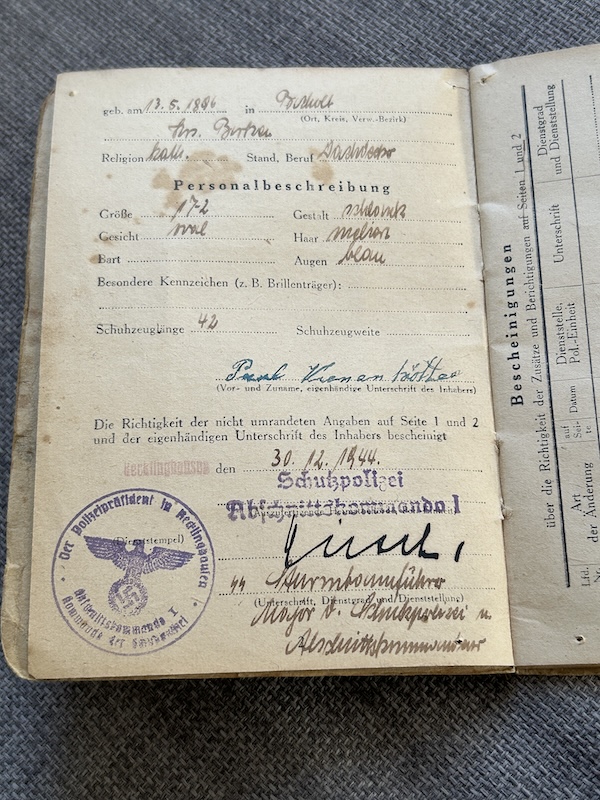 geb. am 13.5.1896 in Bocholt
(Ort, Kreis, Verw.-Bezirk)
Krs. Borken
Religion kath. Stand, Beruf Dachdecker
Personalbeschreibung
Größe 172 Gestalt schlank
Gesicht oval Haar meliert
Bart Augen blau
Besondere Kennzeichen (z. B. Brillenträger):
Schuhzeuglänge 42 Schuhzeugweite
Paul
(Vor- und Zuname, eigenhändige Unterschrift des Inhabers)
Die Richtigkeit der nicht umrandeten Angaben auf Seite 1 und 2
und der eigenhändigen Unterschrift des Inhabers bescheinigt
Recklinghausen den 30.12.1944.
Schutzpolizei
Abschnittskommando I
(Dienststempel)
Der Polizeipräsident in Recklinghausen
Abschnittskommando I
Kommando der Schutzpolizei
SS Sturmbannführer
(Unterschrift, Dienstgrad und Dienststellung)
Major d. Schutzpolizei u.
Abschnittskommandeur
Bescheinigungen
über die Richtigkeit der Zusätze und Berichtigungen auf Seiten 1 und 2
Lfd.
Art
der Änderung
auf
Sei-
Datum
Dienststelle,
Pol.-Einheit
Unterschrift
Dienstgrad
und Dienststellung